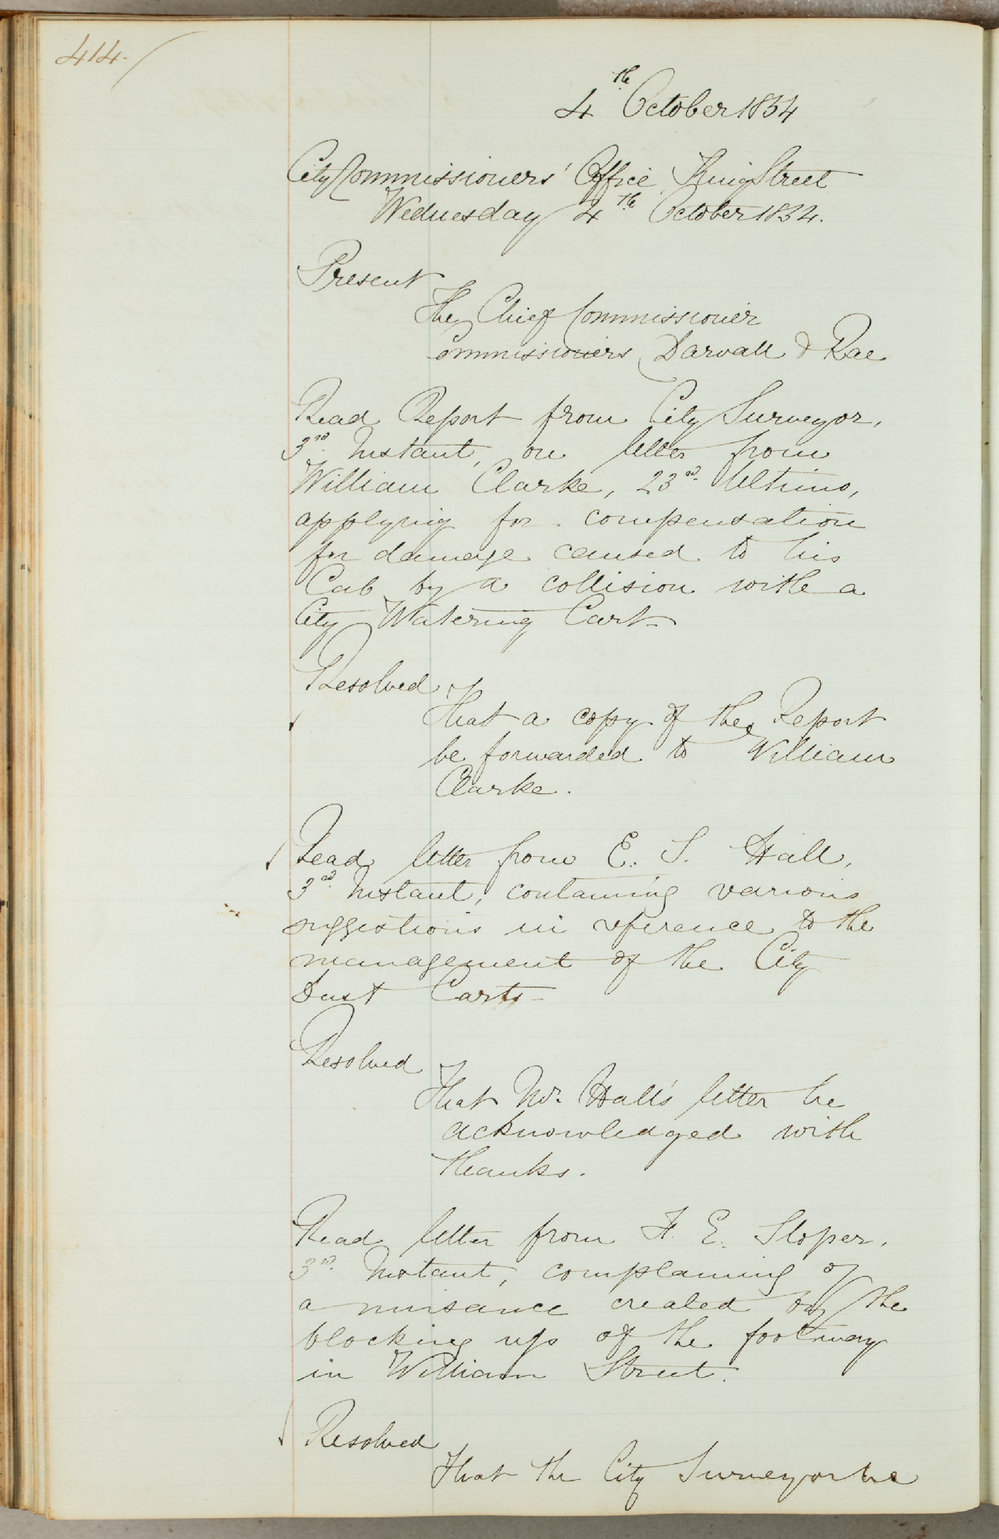 414.
4th October 1854
City Commissioners' Office, King Street
Wednesday 4th October 1854.
Present
The Chief Commissioner
Commissioners Darvall & Rae
Read Report from City Surveyor,
3rd. Instant, on letter from
William Clarke, 23rd. Ultimo,
applying for compensation
for damage caused to his
Cab by a collision with a
City Watering Cart
Resolved
That a copy of the Report
be forwarded to William
Clarke.
Read letter from E. S. Hall,
3rd. Instant, containing various
suggestions in reference to the
management of the City
Dust Carts
Resolved
That Mr. Hall's letter be
acknowledged with
thanks.
Read letter from F. E. Sloper,
3rd. Instant, complaining of
a nuisance created by the
blocking up of the footway
in William Street.
Resolved
That the City Surveyor be